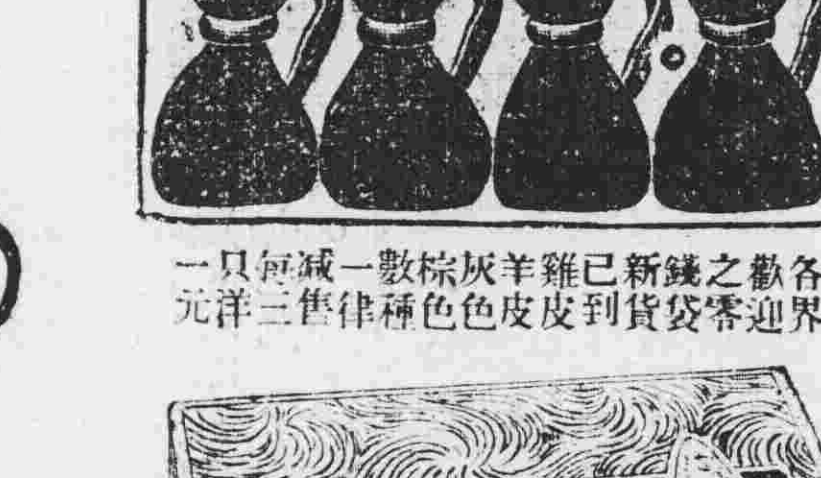 各界
歡迎
之零
錢袋
新貨
已到
雞皮
羊皮
灰色
棕色
數種
一律
减售
每三
只洋
一元